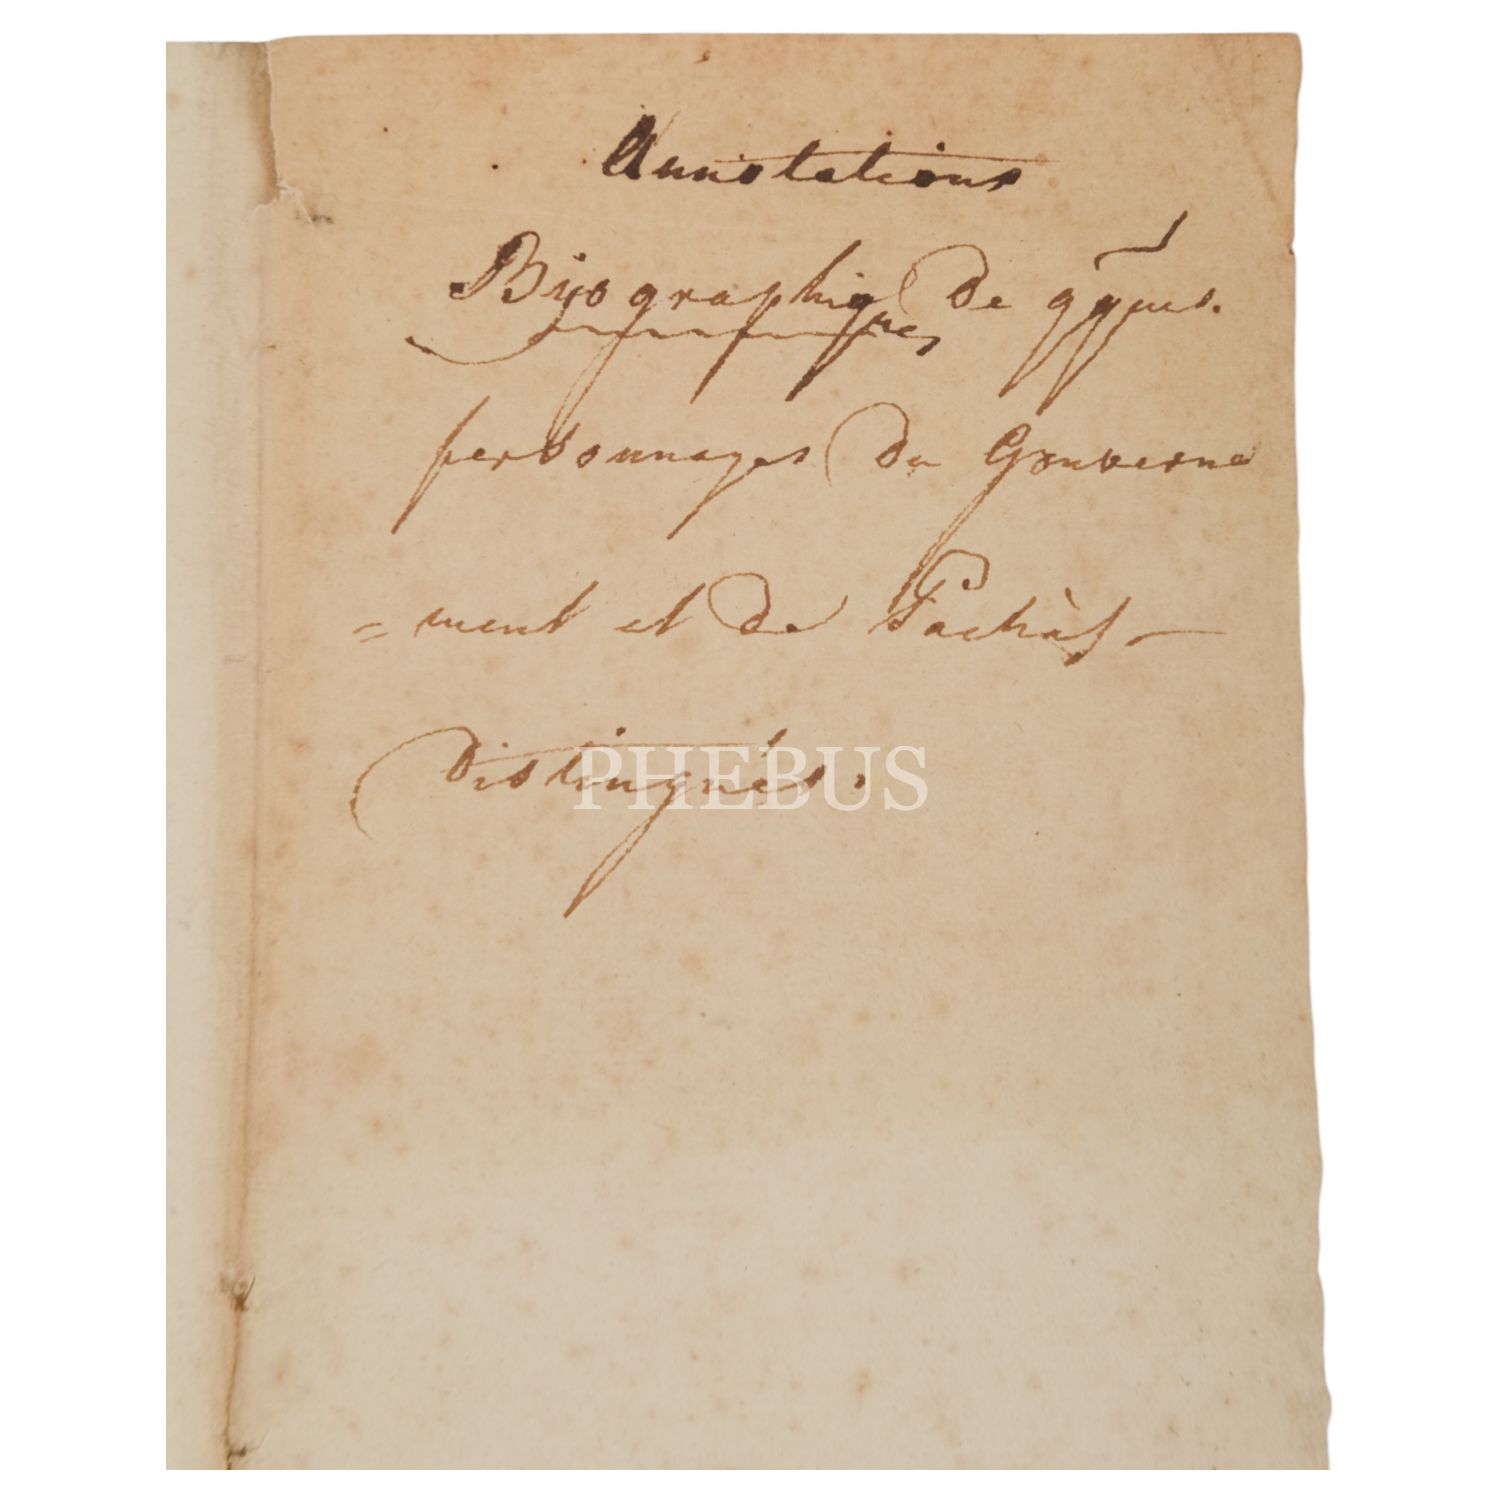 Annotations
Byographiques de qques.
personnages du Gouverne
= ment et de Pachàs —
Distingués.
PHEBUS